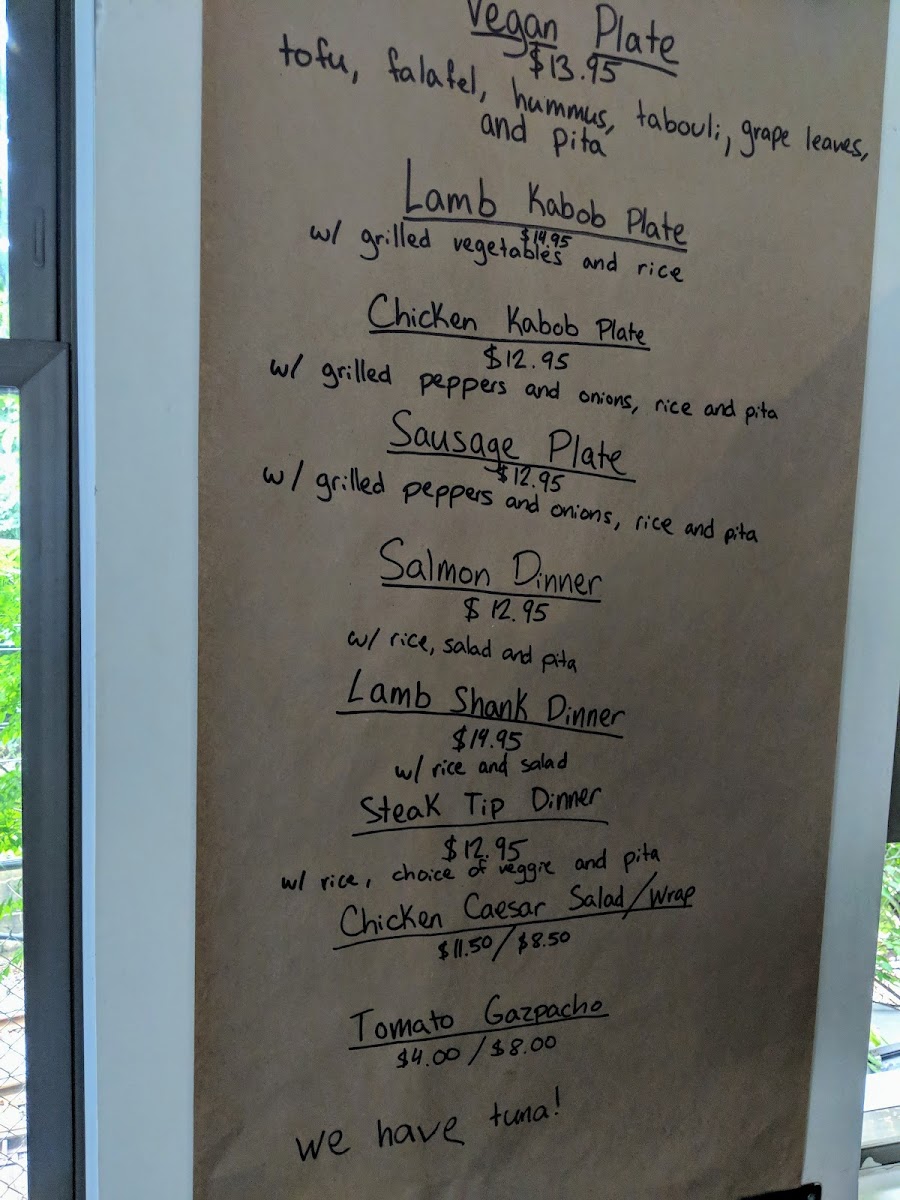 Vegan Plate
$13.95
tofu, falafel, hummus, tabouli, grape leaves,
and pita
Lamb Kabob Plate
$14.95
w/ grilled vegetables and rice
Chicken Kabob Plate
$12.95
w/ grilled peppers and onions, rice and pita
Sausage Plate
$12.95
w/ grilled peppers and onions, rice and pita
Salmon Dinner
$12.95
w/ rice, salad and pita
Lamb Shank Dinner
$14.95
w/ rice and salad
Steak Tip Dinner
$12.95
w/ rice, choice of veggie and pita
Chicken Caesar Salad/Wrap
$11.50/$8.50
Tomato Gazpacho
$4.00/$8.00
we have tuna!